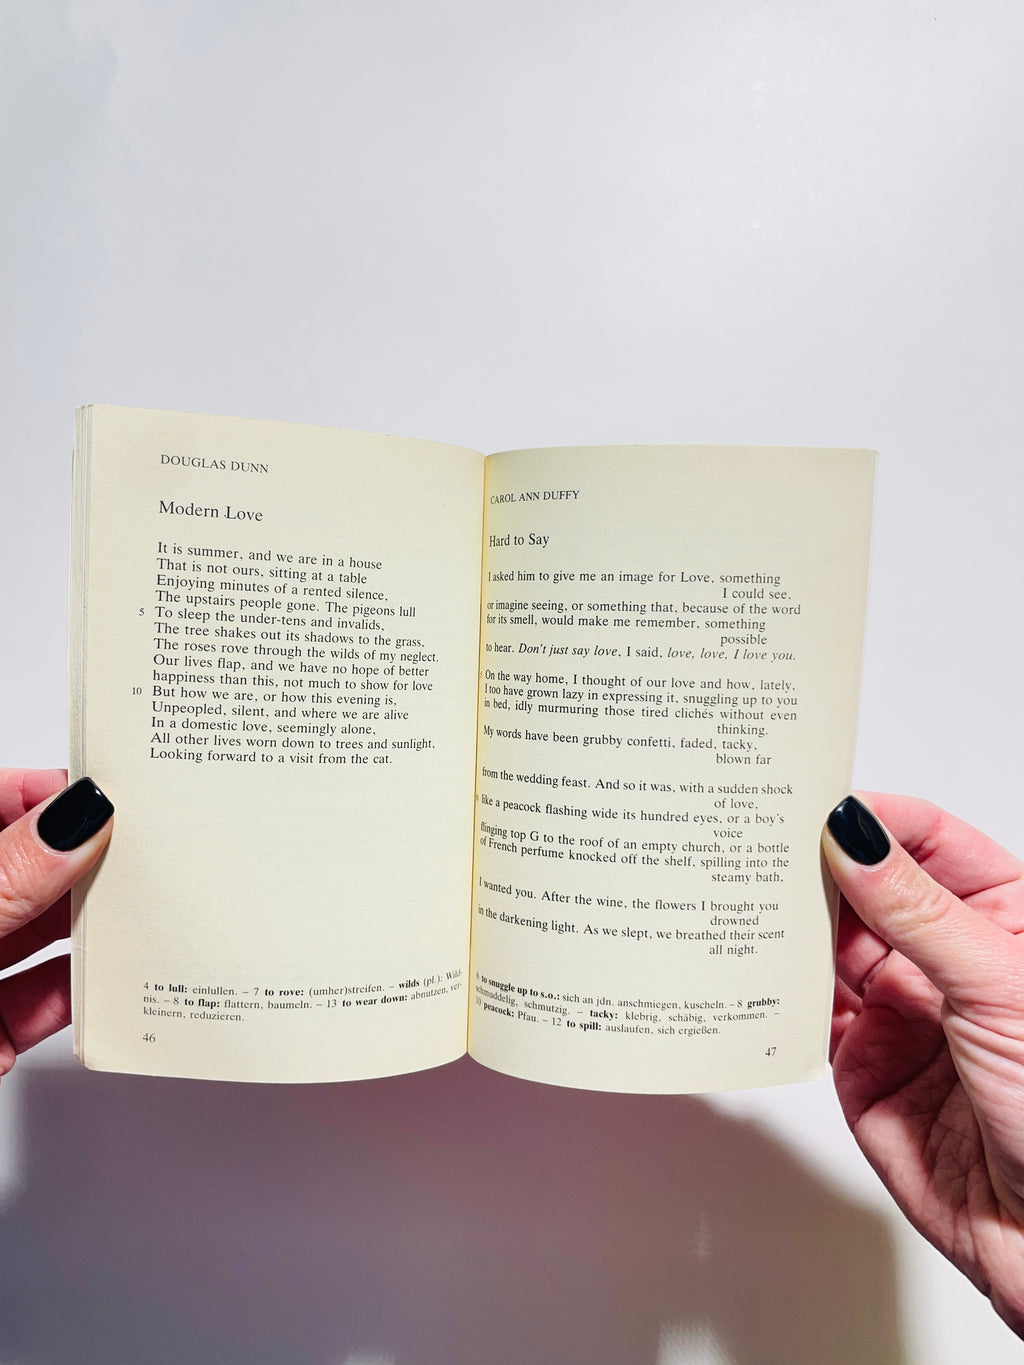 DOUGLAS DUNN
Modern Love
It is summer, and we are in a house
That is not ours, sitting at a table
Enjoying minutes of a rented silence,
The upstairs people gone. The pigeons lull
5 To sleep the under-tens and invalids,
The tree shakes out its shadows to the grass,
The roses rove through the wilds of my neglect.
Our lives flap, and we have no hope of better
happiness than this, not much to show for love
10 But how we are, or how this evening is,
Unpeopled, silent, and where we are alive
In a domestic love, seemingly alone,
All other lives worn down to trees and sunlight,
Looking forward to a visit from the cat.
4 to lull: einlullen. – 7 to rove: (umher)streifen. – wilds (pl.): Wild-
nis. – 8 to flap: flattern, baumeln. – 13 to wear down: abnutzen, ver-
kleinern, reduzieren.
46
CAROL ANN DUFFY
Hard to Say
I asked him to give me an image for Love, something
I could see,
or imagine seeing, or something that, because of the word
for its smell, would make me remember, something
possible
to hear. Don't just say love, I said, love, love, I love you.
5 On the way home, I thought of our love and how, lately,
I too have grown lazy in expressing it, snuggling up to you
in bed, idly murmuring those tired clichés without even
thinking.
My words have been grubby confetti, faded, tacky,
blown far
from the wedding feast. And so it was, with a sudden shock
of love,
like a peacock flashing wide its hundred eyes, or a boy's
voice
flinging top G to the roof of an empty church, or a bottle
of French perfume knocked off the shelf, spilling into the
steamy bath,
I wanted you. After the wine, the flowers I brought you
drowned
in the darkening light. As we slept, we breathed their scent
all night.
6 to snuggle up to s.o.: sich an jdn. anschmiegen, kuscheln. – 8 grubby:
schmuddelig, schmutzig. – tacky: klebrig, schäbig, verkommen. –
10 peacock: Pfau. – 12 to spill: auslaufen, sich ergießen.
47